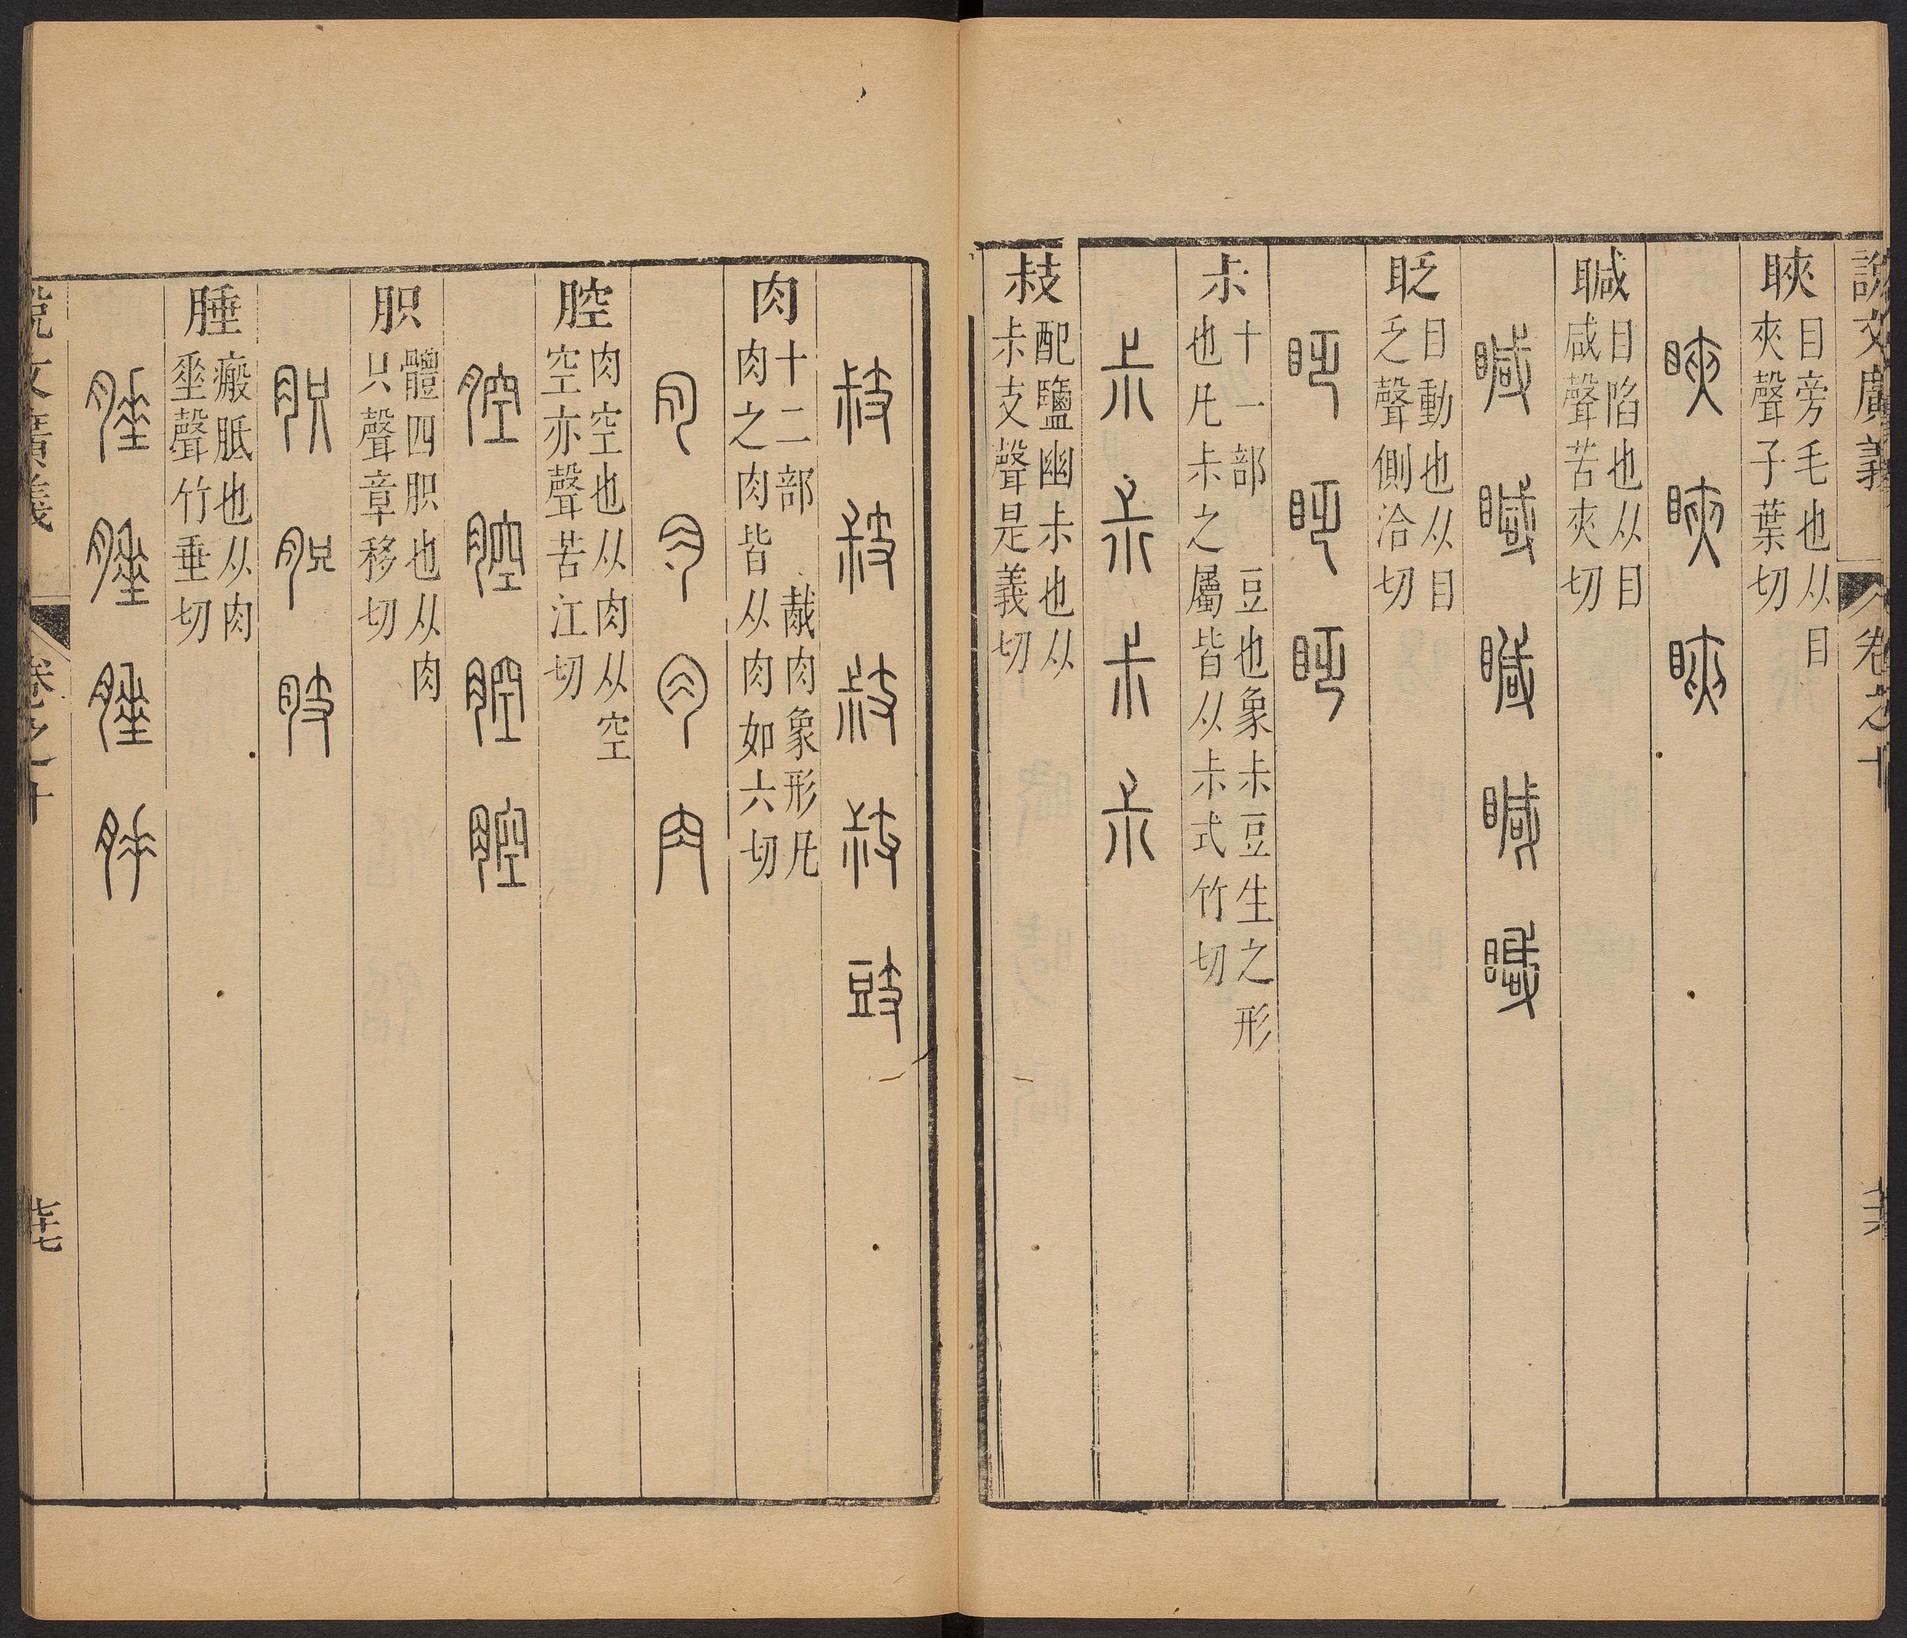 說文廣義 卷之十
䀹 目旁毛也从目
夾聲子葉切
䀹䀹䀹
䁍 目陷也从目
咸聲苦夾切
䁍䁍䁍䁍䁍
眨 目動也从目
乏聲側洽切
眨眨眨
尗 十一部 豆也象尗豆生之形
也凡尗之屬皆从尗式竹切
尗尗尗尗
敊 配鹽幽尗也从
尗支聲是義切
敊敊敊敊豉
肉 十二部 胾肉象形凡
肉之肉皆从肉如六切
肉肉肉肉
腔 肉空也从肉从空
空亦聲苦江切
腔腔腔腔
胑 體四胑也从肉
只聲章移切
胑胑肢
腄 瘢胝也从肉
𡍮聲竹垂切
腄腄腄
說文廣義 卷之十